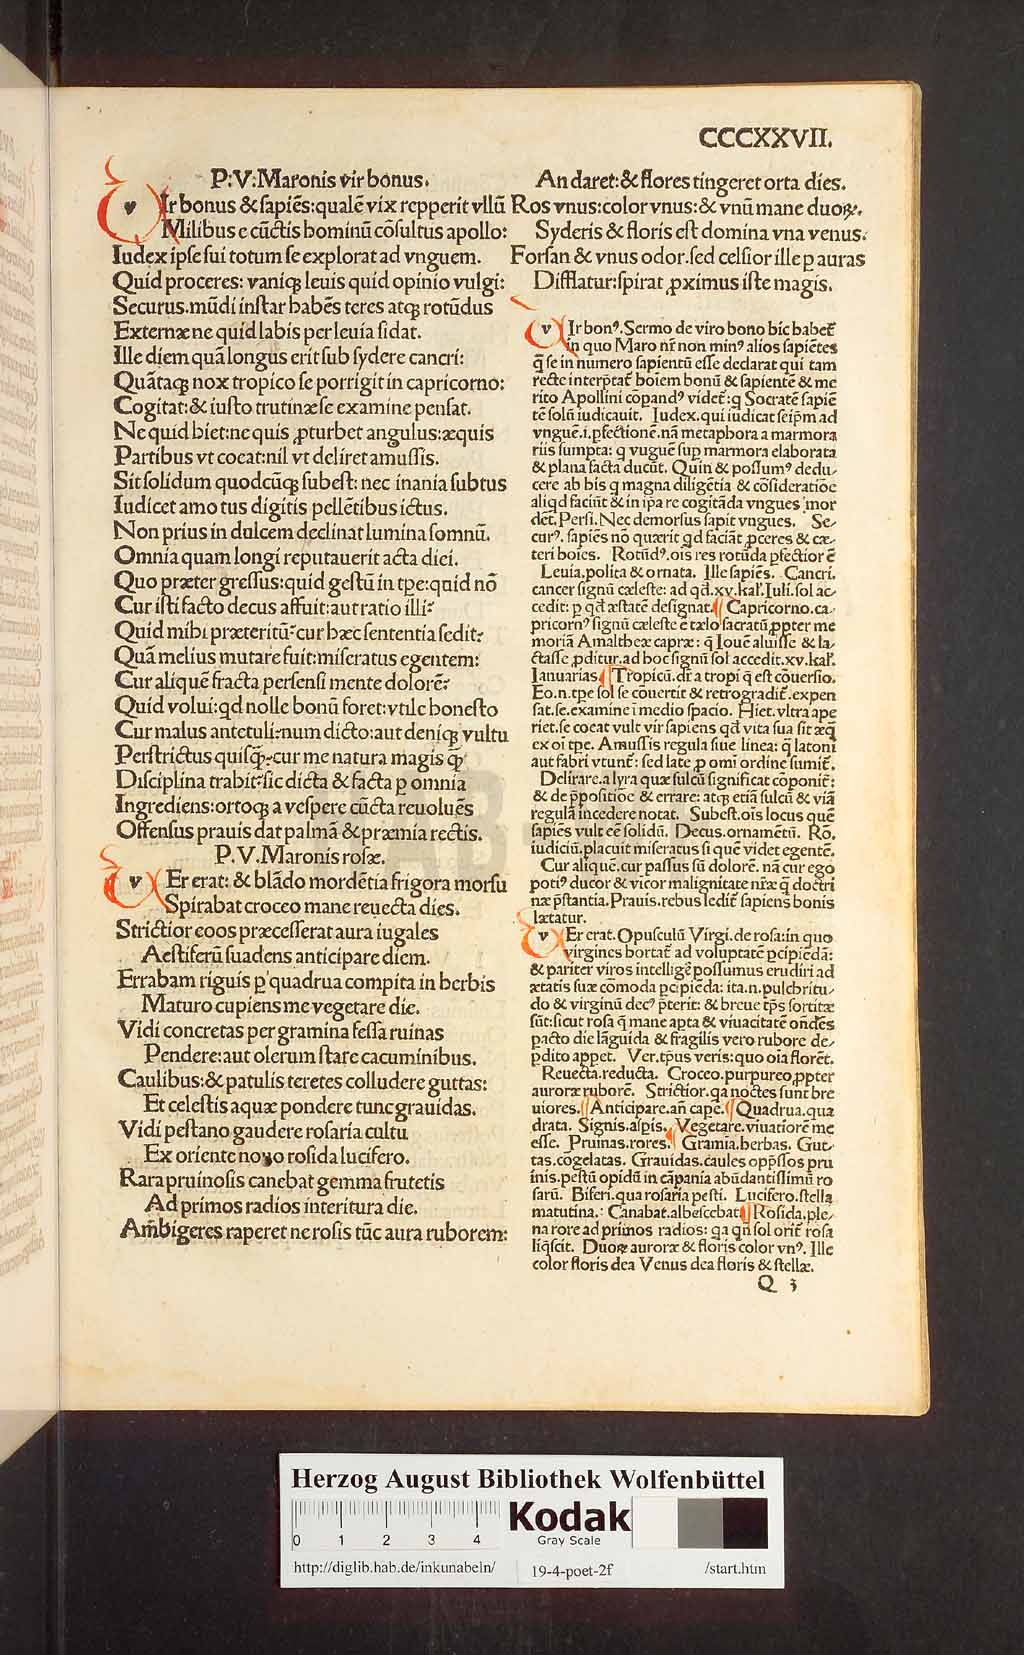 CCCXXVII.
P:V:Maronis vir bonus.
VIr bonus & sapiēs:qualē vix repperit vllū
Milibus e cūctis hominū cōsultus apollo:
Iudex ipse sui totum se explorat ad vnguem.
Quid proceres: vaniqꝫ leuis quid opinio vulgi:
Securus.mūdi instar habēs teres atqꝫ rotūdus
Externæ ne quid labis per leuia sidat.
Ille diem quā longus erit sub sydere cancri:
Quātaqꝫ nox tropico se porrigit in capricorno:
Cogitat:& iusto trutinæ se examine pensat.
Ne quid hiet:ne quis ꝓturbet angulus:æquis
Partibus vt coeat:nil vt deliret amussis.
Sit solidum quodcūqꝫ subest: nec inania subtus
Iudicet amotus digitis pellētibus ictus.
Non prius in dulcem declinat lumina somnū.
Omnia quam longi reputauerit acta diei.
Quo præter gressus:quid gestū in tp̄e:quid nō
Cur isti facto decus affuit:aut ratio illi?
Quid mihi præteritū?cur hæc sententia sedit?
Quā melius mutare fuit:miseratus egentem:
Cur aliquē fracta persensi mente dolorē?
Quid volui:qd nolle bonū foret:vtile honesto
Cur malus antetuli?num dicto:aut deniqꝫ vultu
Perstrictus quisq̄?cur me natura magis q̄
Disciplina trahit?sic dicta & facta ꝑ omnia
Ingrediens:ortoqꝫ a vespere cūcta reuoluēs
Offensus prauis dat palmā & præmia rectis.
P.V.Maronis rosæ.
VEr erat: & blādo mordētia frigora morsu
Spirabat croceo mane reuecta dies.
Strictior eoos præcesserat aura iugales
Aestiferū suadens anticipare diem.
Errabam riguis ꝑ quadrua compita in herbis
Maturo cupiens me vegetare die.
Vidi concretas per gramina fessa ruinas
Pendere:aut olerum stare cacuminibus.
Caulibus:& patulis teretes colludere guttas:
Et celestis aquæ pondere tunc grauidas.
Vidi pestano gaudere rosaria cultu
Ex oriente nouo rosida lucifero.
Rara pruinosis canebat gemma frutetis
Ad primos radios interitura die.
Ambigeres raperet ne rosis tūc aura ruborem:
An daret:& flores tingeret orta dies.
Ros vnus:color vnus:& vnū mane duoꝝ.
Syderis & floris est domina vna venus.
Forsan & vnus odor.sed celsior ille ꝑ auras
Difflatur:spirat ꝓximus iste magis.
VIr bonꝰ.Sermo de viro bono hic habet̄
in quo Maro nr̄ non minꝰ alios sapiētes
q̄ se in numero sapientū esse declarat qui tam
recte interp̄tat̄ hoiem bonū & sapientē & me
rito Apollini cōpandꝰ videt̄:q Socratē sapiē
tē solū iudicauit. Iudex.qui iudicat seip̄m ad
vnguē.i.ꝑfectionē.nā metaphora a marmora
riis sumpta: q vnguē sup marmora elaborata
& plana facta ducūt. Quin & possumꝰ dedu-
cere ab his q magna diligētia & cōsideratiōe
aliqd faciūt & in ip̄a re cogitāda vngues mor
det.Persi.Nec demorsus sapit vngues. Se-
curꝰ. sapiēs nō quærit qd faciāt ꝓceres & cæ-
teri hoies. Rotūdꝰ.ois res rotūda ꝑfectior ē
Leuia.polita & ornata. Ille sapiēs. Cancri.
cancer signū cæleste: ad qd.xv.kaľ.Iuli.sol ac-
cedit: ꝑ qd æstatē designat. Capricorno.ca-
pricornꝰ signū cæleste ē cælo sacratū ꝓpter me
moriā Amaltheæ capræ: q̄ Iouē aluisse & la-
ctasse ꝓditur.ad hoc signū sol accedit.xv.kaľ.
Ianuarias. Tropicū.dr̄ a tropi q̄ est cōuersio.
Eo.n.tp̄e sol se cōuertit & retrogradit̄.expen
sat.se.examine ī medio spacio. Hiet.vltra ape
riet.se coeat vult vir sapiens qd vita sua sit æq̄
ex oi tp̄e. Amussis regula siue linea: q̄ latoni
aut fabri vtunt̄: sed late ꝓ omi ordine sumit̄.
Delirare.a lyra quæ sulcū significat cōponit̄:
& de p̄positiōe & errare: atqꝫ etiā sulcū & viā
regulā incedere notat. Subest.ois locus quē
sapiēs vult eē solidū. Decus.ornamētū. Rō.
iudiciū.placuit miseratus si quē videt egentē.
Cur aliquē.cur passus sū dolorē. nā cur ego
potiꝰ ducor & vicor malignitate nr̄æ q̄ doctri
næ p̄stantia.Prauis.rebus ledit̄ sapiens bonis
lætatur.
VEr erat.Opusculū Virgi.de rosa:in quo
virgines hortat̄ ad voluptatē ꝑcipiēda:
& pariter viros intellige possumus erudiri ad
ætatis suæ cōmoda ꝑcipiēda: ita.n.pulchritu-
do & virginū decꝰ p̄terit: & breue tp̄s sortitæ
sūt:sicut rosa q̄ mane apta & viuacitatē ondēs
pacto die lāguida & fragilis vero rubore de-
ꝑdito appet. Ver.tp̄us veris:quo oia florēt.
Reuecta.reducta. Croceo.purpureo ꝓpter
auroræ ruborē. Strictior.qa noctes sunt bre
uiores. Anticipare.an̄ cape. Quadrua.qua
drata. Signis.aspis. Vegetare.viuatiorē me
esse. Pruinas.rores. Gramīa.herbas. Gut-
tas.cōgelatas. Grauidas.caules opp̄ssos pru
inis.pestū opidū in cāpania abūdantissimū ro
sarū. Biferi.qua rosaria pesti. Lucifero.stella
matutina. Canabat.albescebat. Rosida.ple-
na rore ad primos radios: qa qn̄ sol orit̄ rosa
liq̄scit. Duoꝝ auroræ & floris color vnꝰ. Ille
color floris dea Venus dea floris & stellæ.
Q 3
Herzog August Bibliothek Wolfenbüttel
0 1 2 3 4
Kodak
Gray Scale
http://diglib.hab.de/inkunabeln/ 19-4-poet-2f /start.htm